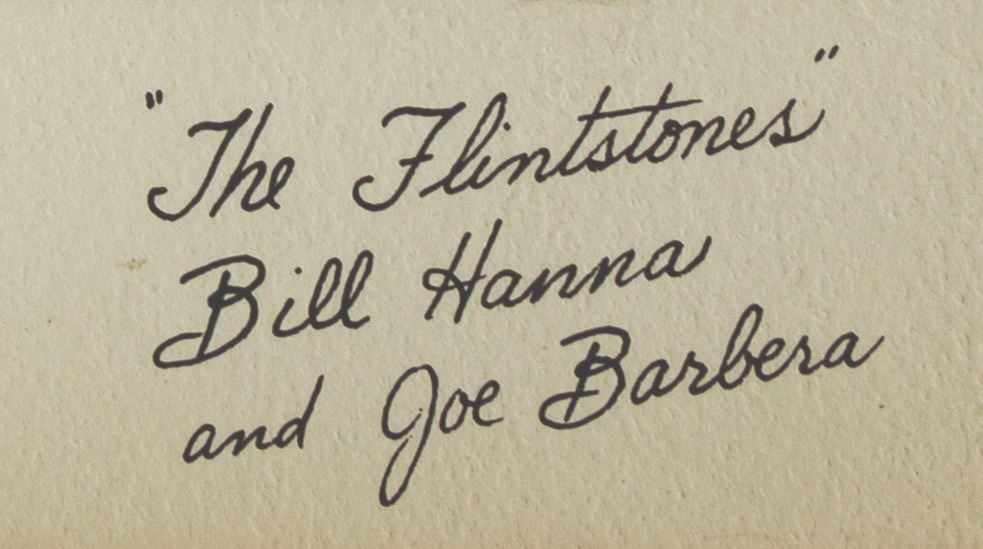 "The Flintstones"
Bill Hanna
and Joe Barbera